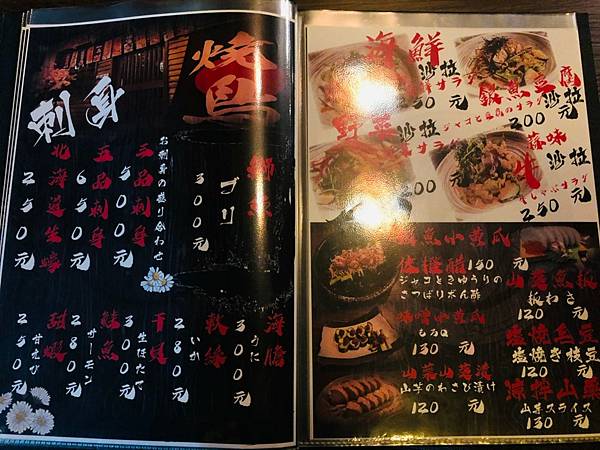 焼鳥
刺身
お刺身の盛り合わせ
三品刺身
500元
五品刺身
650元
北海道生蠔
250元
鰤魚
ブリ
300元
海膽
うに
300元
軟絲
いか
280元
干貝
生ほたて
280元
鮭魚
サーモン
280元
甜蝦
甘えび
250元
海鮮
沙拉
サラダ
50元
銀魚豆腐
沙拉
ジャコと豆腐のサラダ
200元
野菜
沙拉
サラダ
200元
蒜味
沙拉
250元
魚小黃瓜
佐柑醋 150元
ジャコときゅうりの
さっぱりポン酢
山葵魚板
板わさ
120元
味噌小黃瓜
もろQ
130元
塩焼毛豆
塩焼き枝豆
120元
山葵山藥漬
山芋のわさび漬け
120元
涼拌山藥
山芋スライス
130元